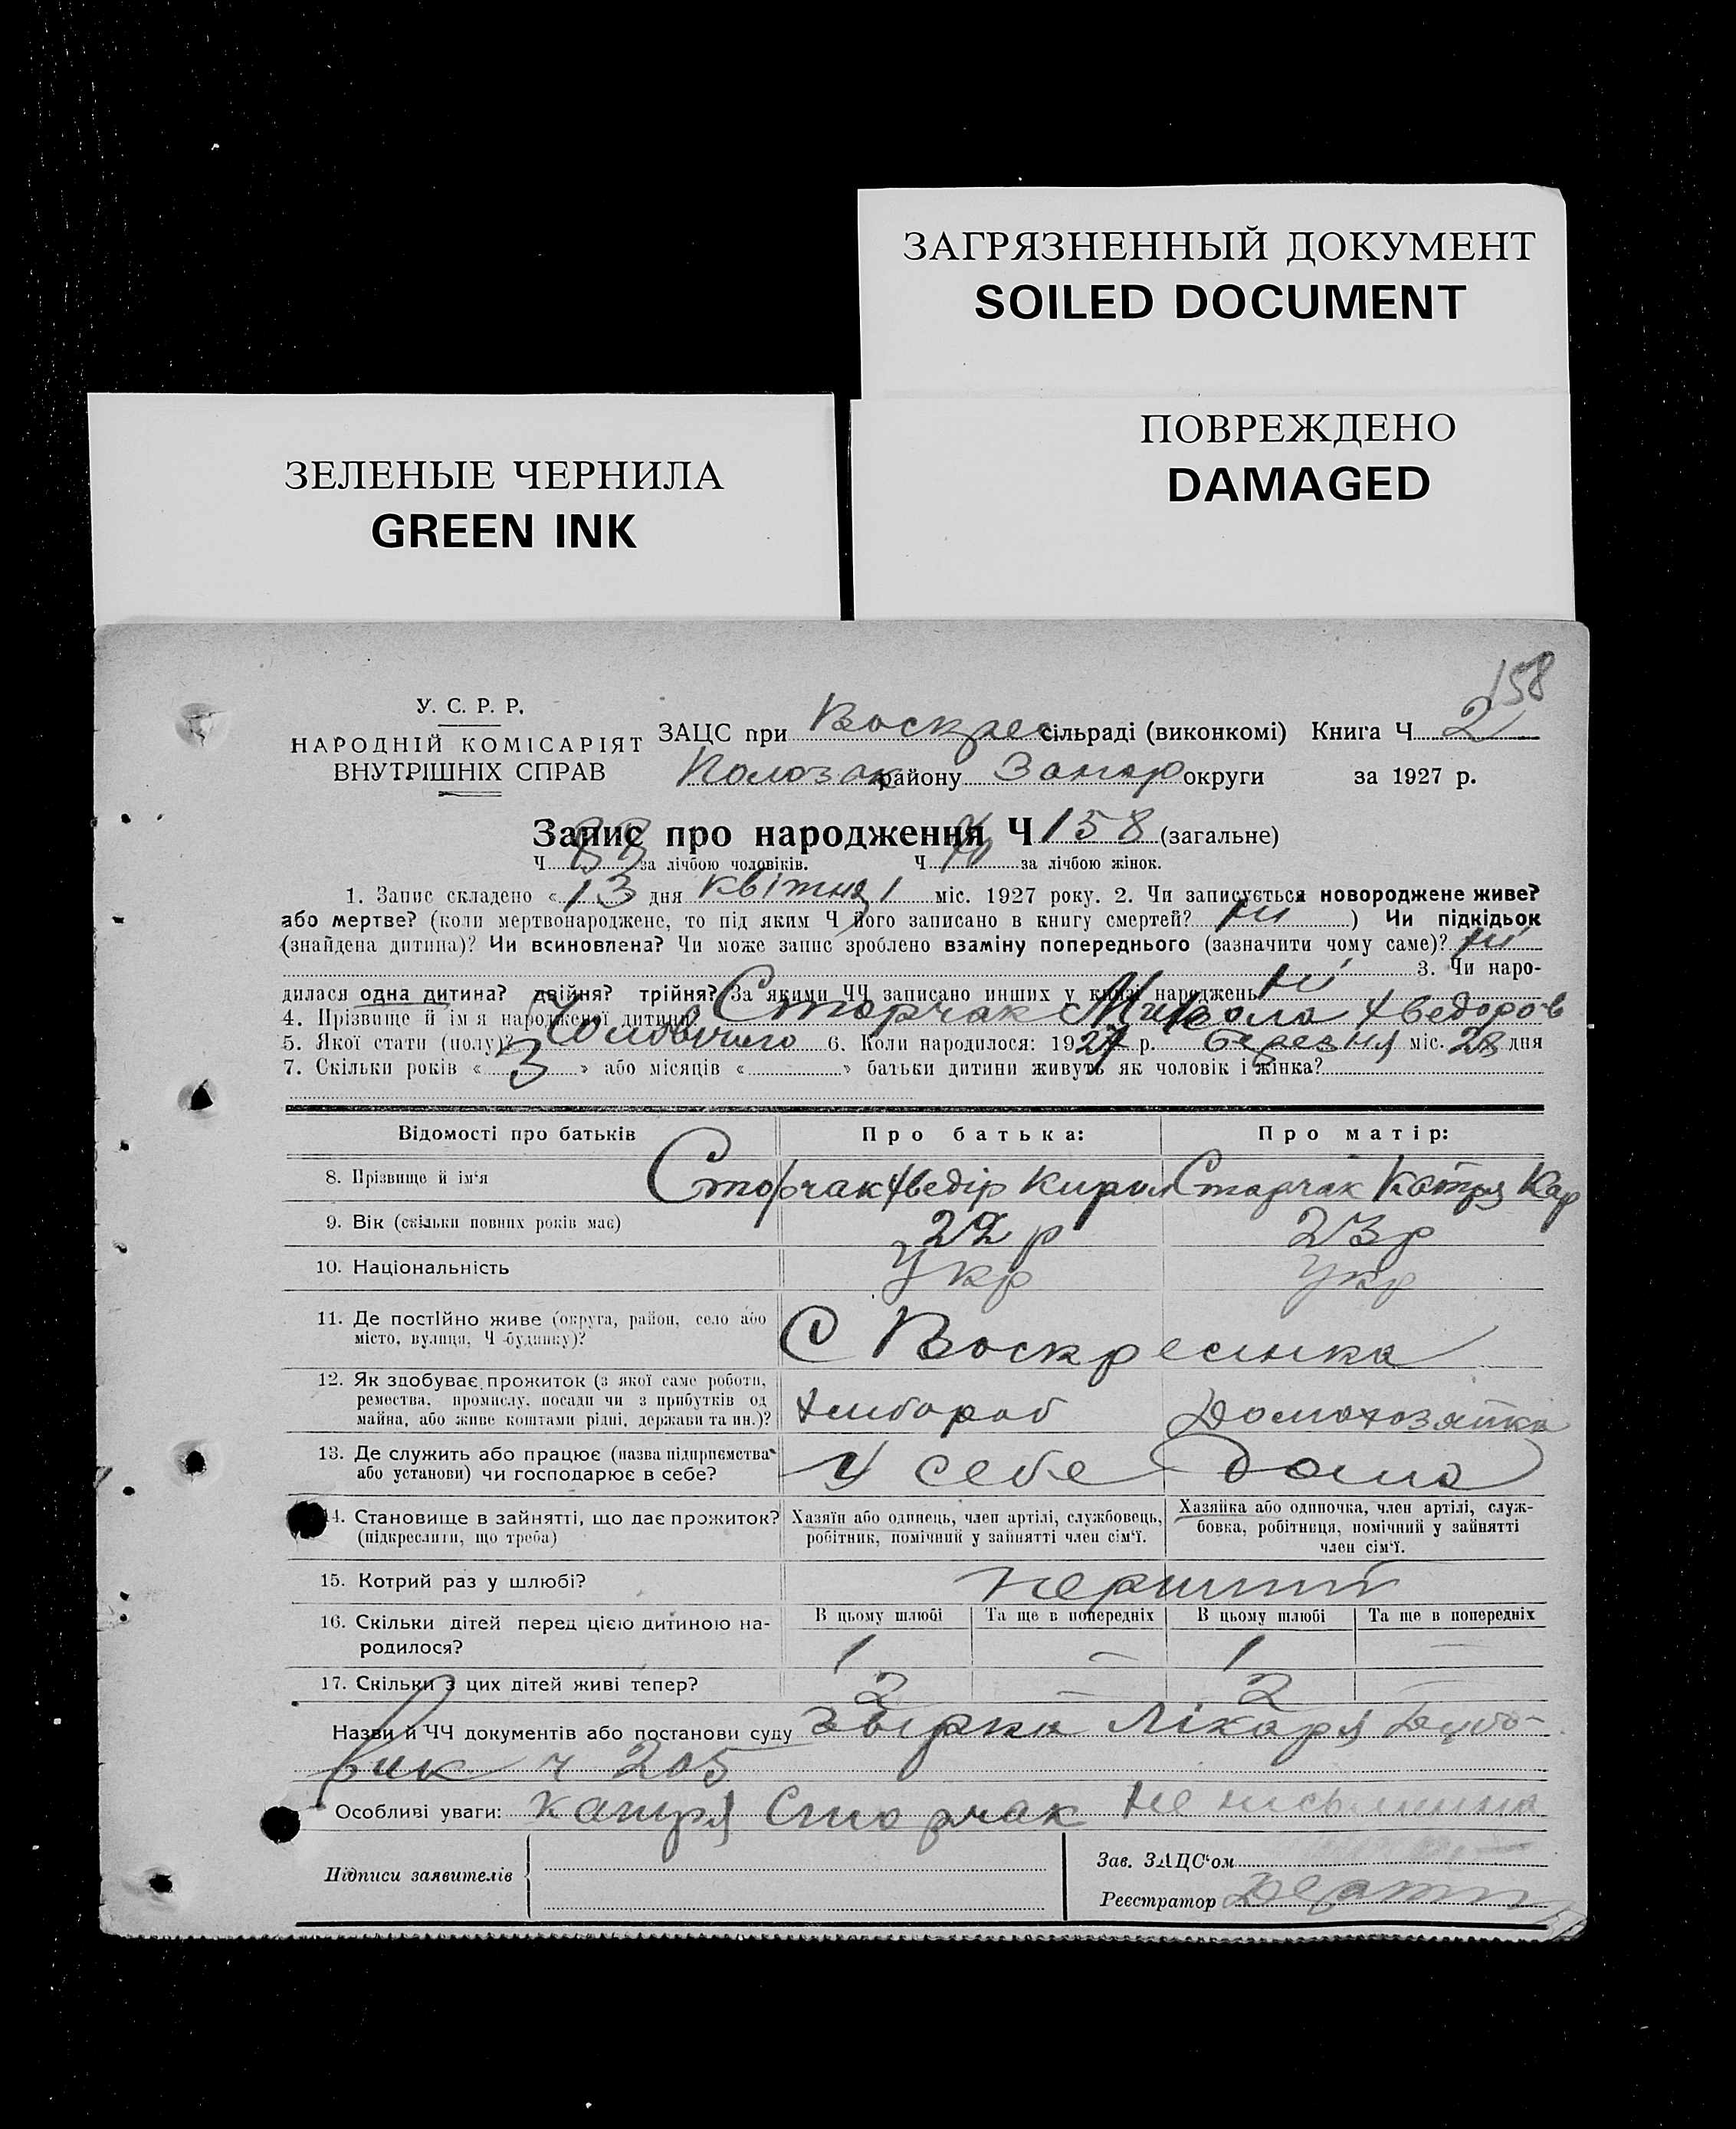 ЗАГРЯЗНЕННЫЙ ДОКУМЕНТ
SOILED DOCUMENT
ПОВРЕЖДЕНО
DAMAGED
ЗЕЛЕНЫЕ ЧЕРНИЛА
GREEN INK
158
У. С. Р. Р.
НАРОДНІЙ КОМІСАРІЯТ
ВНУТРІШНІХ СПРАВ
ЗАЦС при Воскрес сільраді (виконкомі) Книга Ч 2
Пологак району Запор округи за 1927 р.
Запис про народження Ч 158 (загальне)
Ч 88 за лічбою чоловіків. Ч за лічбою жінок.
1. Запис складено « 13 дня квітня міс. 1927 року. 2. Чи записується новороджене живе?
або мертве? (коли мертвонароджене, то під яким Ч його записано в книгу смертей? ні ) Чи підкідьок
(знайдена дитина)? Чи всиновлена? Чи може запис зроблено взаміну попереднього (зазначити чому саме)? ні
3. Чи наро-
дилася одна дитина? двійня? трійня? За якими ЧЧ записано инших у книзі народжень ні
4. Прізвище й ім'я народженої дитини Сторчак Микола Хведоров
5. Якої стати (полу)? Чоловічого 6. Коли народилося: 1927 р. березня міс. 28 дня
7. Скільки років « 3 » або місяців « » батьки дитини живуть як чоловік і жінка?
Відомості про батьків Про батька: Про матір:
8. Прізвище й ім'я Сторчак Хведір Кирил Сторчак Катря Кар
9. Вік (скільки повних років має) 22 р 23 р
10. Національність Укр Укр
11. Де постійно живе (округа, район, село або
місто, вулиця, Ч будинку)? С Воскресенка
12. Як здобуває прожиток (з якої саме роботи,
ремества, промислу, посади чи з прибутків од
майна, або живе коштами рідні, держави та ин.)? Хлибороб Домохозяйка
13. Де служить або працює (назва підприємства
або установи) чи господарює в себе? У себе Дома
14. Становище в зайнятті, що дає прожиток?
(підкреслити, що треба)
Хазяїн або одинець, член артілі, службовець,
робітник, помічний у зайнятті член сім'ї.
Хазяйка або одиночка, член артілі, служ-
бовка, робітниця, помічний у зайнятті
член сім'ї.
15. Котрий раз у шлюбі? Перший
16. Скільки дітей перед цією дитиною на-
родилося?
В цьому шлюбі Та ще в попередніх В цьому шлюбі Та ще в попередніх
1 — 1 —
17. Скільки з цих дітей живі тепер? 2 — 2 —
Назви й ЧЧ документів або постанови суду Лікаря
ч 205
Особливі уваги: Катря Сторчак не письминна
Підписи заявителів
Зав. ЗАЦС'ом
Реєстратор